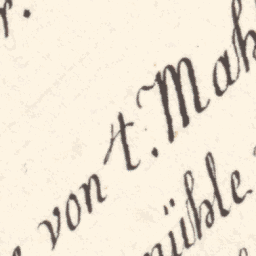 von t. Mah
mühle